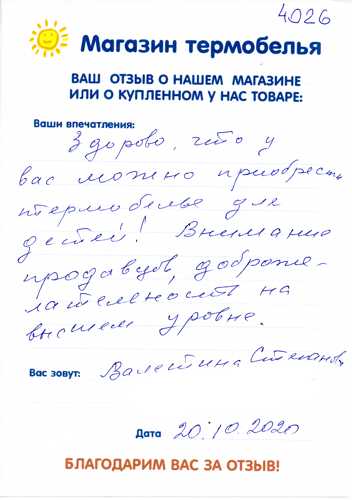 4026
Магазин термобелья
ВАШ ОТЗЫВ О НАШЕМ МАГАЗИНЕ
ИЛИ О КУПЛЕННОМ У НАС ТОВАРЕ:
Ваши впечатления:
Здорово, что у
вас можно приобрести
термобелье для
детей! Внимание
продавцов, доброже-
лательность на
высшем уровне.
Вас зовут: Валентина Степанов
Дата 20.10.2020
БЛАГОДАРИМ ВАС ЗА ОТЗЫВ!